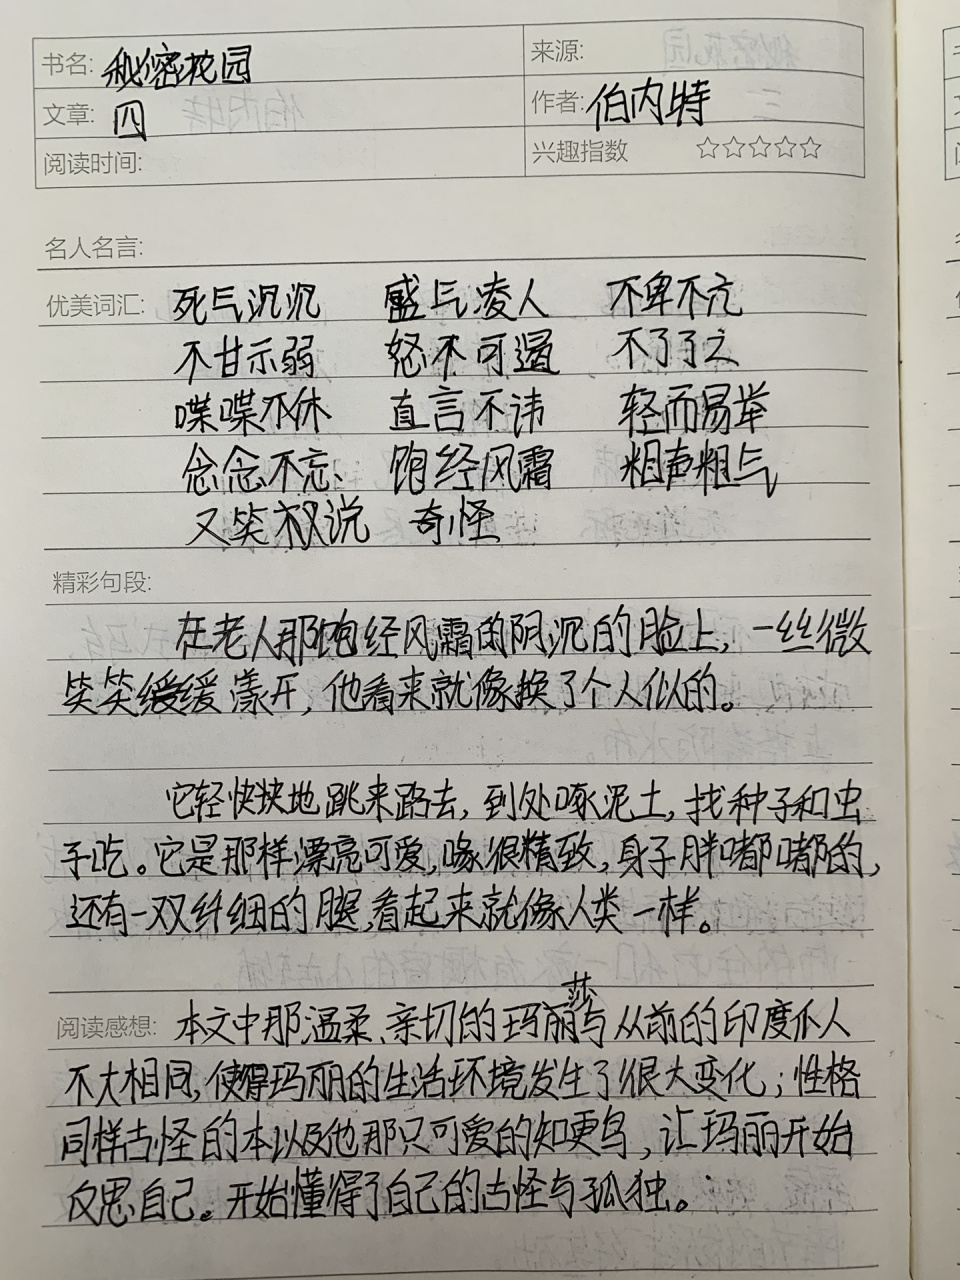 书名: 秘密花园 来源:
文章: 四 作者: 伯内特
阅读时间: 兴趣指数 ☆☆☆☆☆
名人名言:
优美词汇: 死气沉沉 盛气凌人 不卑不亢
不甘示弱 怒不可遏 不了了之
喋喋不休 直言不讳 轻而易举
念念不忘 饱经风霜 粗声粗气
又笑又说 奇怪
精彩句段:
在老人那饱经风霜的阴沉的脸上，一丝微
笑笑缓缓漾开，他看来就像换了个人似的。
它轻快快地跳来路去，到处啄泥土，找种子和虫
子吃。它是那样漂亮可爱，喙很精致，身子胖嘟嘟的，
还有一双纤细的腿，看起来就像人类一样。
阅读感想: 本文中那温柔、亲切的玛丽莎与从前的印度仆人
不大相同，使得玛丽的生活环境发生了很大变化；性格
同样古怪的本以及他那只可爱的知更鸟，让玛丽开始
反思自己。开始懂得了自己的古怪与孤独。